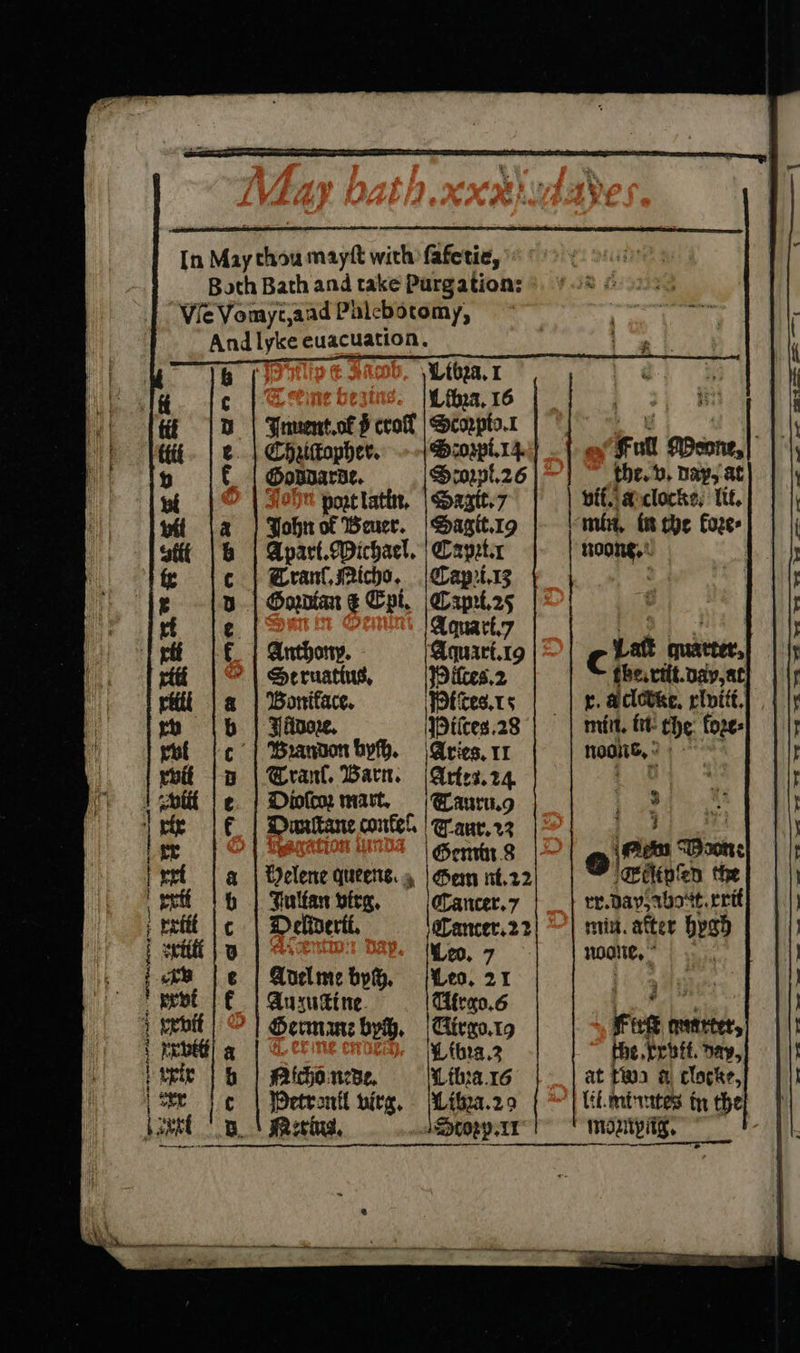 May hath.xxxi.dayes.
In May thou mayſt with ſafetie,
Both Bath and take Purgation:
Vſe Vomyt,and Phlebotomy,
And lyke euacuation.
b Philip & Jacob. Libra. 1
ii c Terme begins. Libra. 16
iii D Inuent.of þ croſſ Scorpio.1
iiii e Chriſtopher. Scorpi.14. Full Moone,
v f Goddarde. Scorpi.26 the.v. day, at
vi G John port latin. Sagit.7 vii. a clocke, lii.
vii a John of Beuer. Sagit.19 min. in the fore-
viii b Apari.Michael. Capri.1 noone.
ix c Tranſ.Nicho. Capri.13
x D Gordian & Epi. Capri.25
xi e Sun in Gemini Aquari.7
xii f Anthony. Aquari.19 Laſt quarter,
xiii G Seruatius. Piſces.2 the.xiii.day,at
xiiii a Boniface. Piſces.15 x. a clocke, xlviii.
xv b Iſidore. Piſces.28 min. in the fore-
xvi c Brandon byſh. Aries. 11 noone.
xvii D Tranſ. Barn. Aries.24
xviii e Dioſcor mart. Tauru.9
xix f Dunſtane confeſ. Taur.23
xx G Rogation ſunda Gemin 8 New Moone
xxi a Helene queene. Gem ni.22 Eclipſed the
xxii b Julian virg. Cancer.7 xx.day,about.xxii
xxiii c Deſiderii. Cancer.22 min. after hygh
xxiiii D Aſcention day. Leo. 7 noone.
xxv e Adelme byſh. Leo. 21
xxvi f Auguſtine Virgo.6
xxvii G Germane byſh. Virgo.19 Firſt quarter,
xxviii a Terme endeth. Libra.3 the.xxvii. day,
xxix b Nichomede. Libra.16 at two a clocke,
xxx c Petronil virg. Libra.29 lii.minutes in the
xxxi D Scorp.11 mornyng.